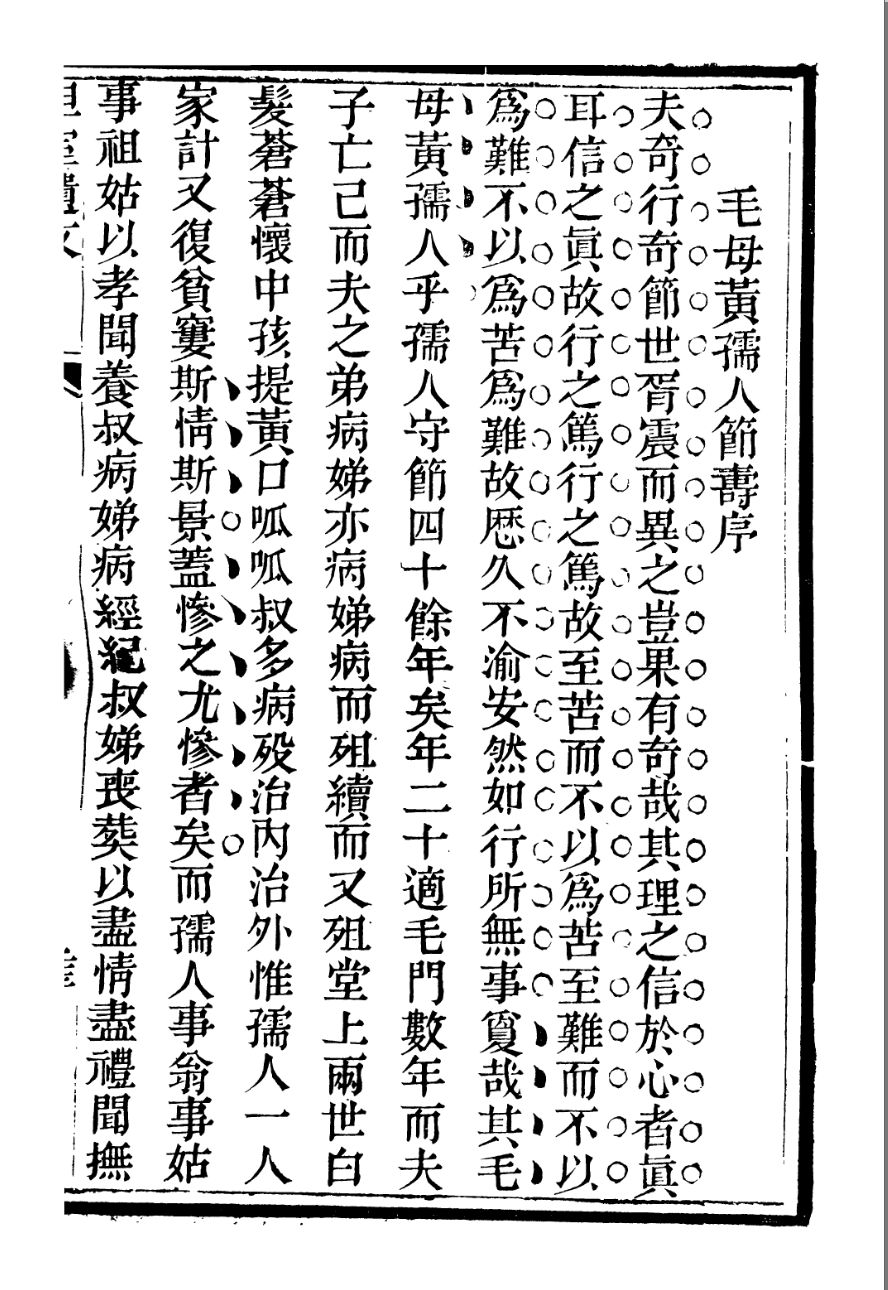 毛母黃孺人節壽序
夫奇行奇節世胥震而異之豈果有奇哉其理之信於心者眞
耳信之眞故行之篤行之篤故至苦而不以爲苦至難而不以
爲難不以爲苦爲難故歷久不渝安然如行所無事敻哉其毛
母黃孺人乎孺人守節四十餘年矣年二十適毛門數年而夫
子亡己而夫之弟病娣亦病娣病而殂續而又殂堂上兩世白
髮蒼蒼懷中孩提黃口呱呱叔多病歿治內治外惟孺人一人
家計又復貧窶斯情斯景蓋慘之尤慘者矣而孺人事翁事姑
事祖姑以孝聞養叔病娣病經紀叔娣喪葬以盡情盡禮聞撫